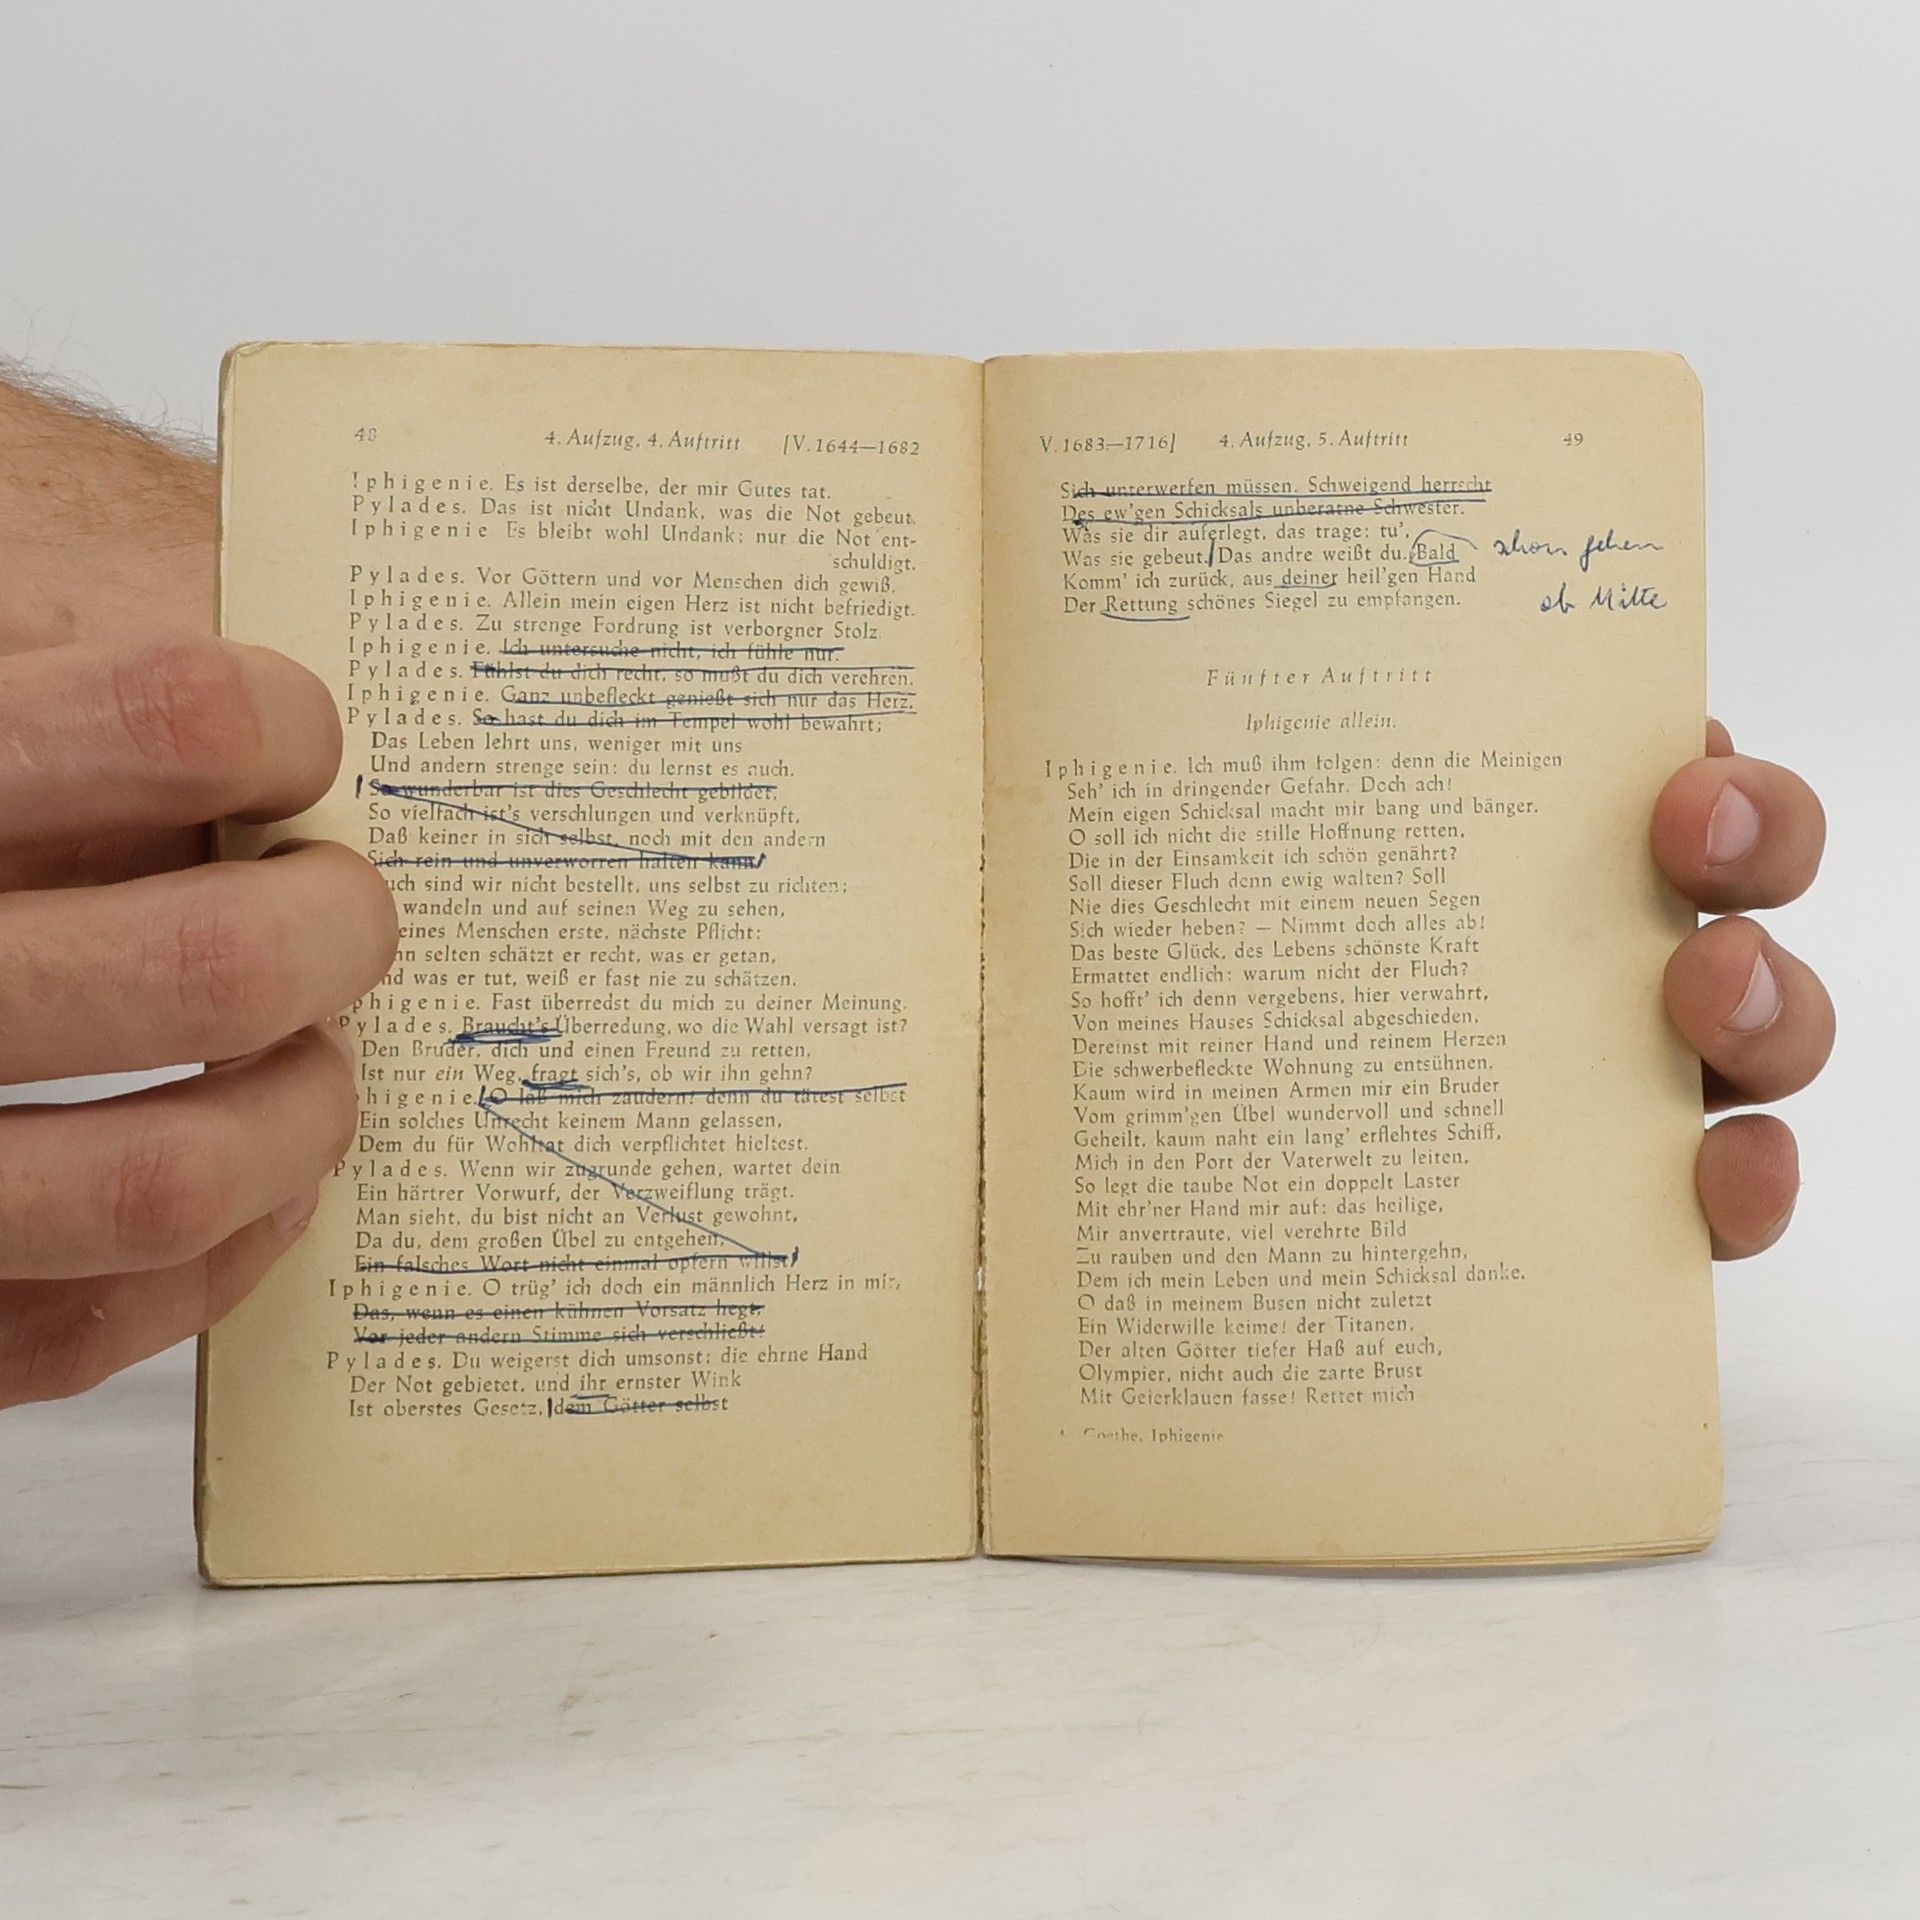 48
4. Aufzug, 4. Auftritt [V. 1644—1682
Iphigenie. Es ist derselbe, der mir Gutes tat.
Pylades. Das ist nicht Undank, was die Not gebeut.
Iphigenie Es bleibt wohl Undank; nur die Not ent-
schuldigt.
Pylades. Vor Göttern und vor Menschen dich gewiß.
Iphigenie. Allein mein eigen Herz ist nicht befriedigt.
Pylades. Zu strenge Fordrung ist verborgner Stolz.
Iphigenie. Ich untersuche nicht, ich fühle nur.
Pylades. Fühlst du dich recht, so mußt du dich verehren.
Iphigenie. Ganz unbefleckt genießt sich nur das Herz.
Pylades. So hast du dich im Tempel wohl bewahrt;
Das Leben lehrt uns, weniger mit uns
Und andern strenge sein: du lernst es auch.
So wunderbar ist dies Geschlecht gebildet,
So vielfach ist's verschlungen und verknüpft,
Daß keiner in sich selbst, noch mit den andern
Sich rein und unverworren halten kann.
uch sind wir nicht bestellt, uns selbst zu richten;
wandeln und auf seinen Weg zu sehen,
eines Menschen erste, nächste Pflicht:
nn selten schätzt er recht, was er getan,
nd was er tut, weiß er fast nie zu schätzen.
phigenie. Fast überredst du mich zu deiner Meinung.
Pylades. Braucht's Überredung, wo die Wahl versagt ist?
Den Bruder, dich und einen Freund zu retten,
Ist nur ein Weg, fragt sich's, ob wir ihn gehn?
higenie. O laß mich zaudern! denn du tätest selbst
Ein solches Unrecht keinem Mann gelassen,
Dem du für Wohltat dich verpflichtet hieltest.
Pylades. Wenn wir zugrunde gehen, wartet dein
Ein härtrer Vorwurf, der Verzweiflung trägt.
Man sieht, du bist nicht an Verlust gewohnt,
Da du, dem großen Übel zu entgehen,
Ein falsches Wort nicht einmal opfern willst.
Iphigenie. O trüg' ich doch ein männlich Herz in mir,
Das, wenn es einen kühnen Vorsatz hegt,
Vor jeder andern Stimme sich verschließt!
Pylades. Du weigerst dich umsonst; die ehrne Hand
Der Not gebietet, und ihr ernster Wink
Ist oberstes Gesetz, dem Götter selbst
V. 1683—1716] 4. Aufzug, 5. Auftritt 49
Sich unterwerfen müssen. Schweigend herrscht
Des ew'gen Schicksals unberatne Schwester.
Was sie dir auferlegt, das trage: tu',
Was sie gebeut. Das andre weißt du. Bald schon gehen
Komm' ich zurück, aus deiner heil'gen Hand
Der Rettung schönes Siegel zu empfangen. ab Mitte
Fünfter Auftritt
Iphigenie allein.
Iphigenie. Ich muß ihm folgen: denn die Meinigen
Seh' ich in dringender Gefahr. Doch ach!
Mein eigen Schicksal macht mir bang und bänger.
O soll ich nicht die stille Hoffnung retten,
Die in der Einsamkeit ich schön genährt?
Soll dieser Fluch denn ewig walten? Soll
Nie dies Geschlecht mit einem neuen Segen
Sich wieder heben? — Nimmt doch alles ab!
Das beste Glück, des Lebens schönste Kraft
Ermattet endlich: warum nicht der Fluch?
So hofft' ich denn vergebens, hier verwahrt,
Von meines Hauses Schicksal abgeschieden,
Dereinst mit reiner Hand und reinem Herzen
Die schwerbefleckte Wohnung zu entsühnen.
Kaum wird in meinen Armen mir ein Bruder
Vom grimm'gen Übel wundervoll und schnell
Geheilt, kaum naht ein lang' erflehtes Schiff,
Mich in den Port der Vaterwelt zu leiten,
So legt die taube Not ein doppelt Laster
Mit ehr'ner Hand mir auf: das heilige,
Mir anvertraute, viel verehrte Bild
Zu rauben und den Mann zu hintergehn,
Dem ich mein Leben und mein Schicksal danke.
O daß in meinem Busen nicht zuletzt
Ein Widerwille keime! der Titanen,
Der alten Götter tiefer Haß auf euch,
Olympier, nicht auch die zarte Brust
Mit Geierklauen fasse! Rettet mich
Goethe, Iphigenie